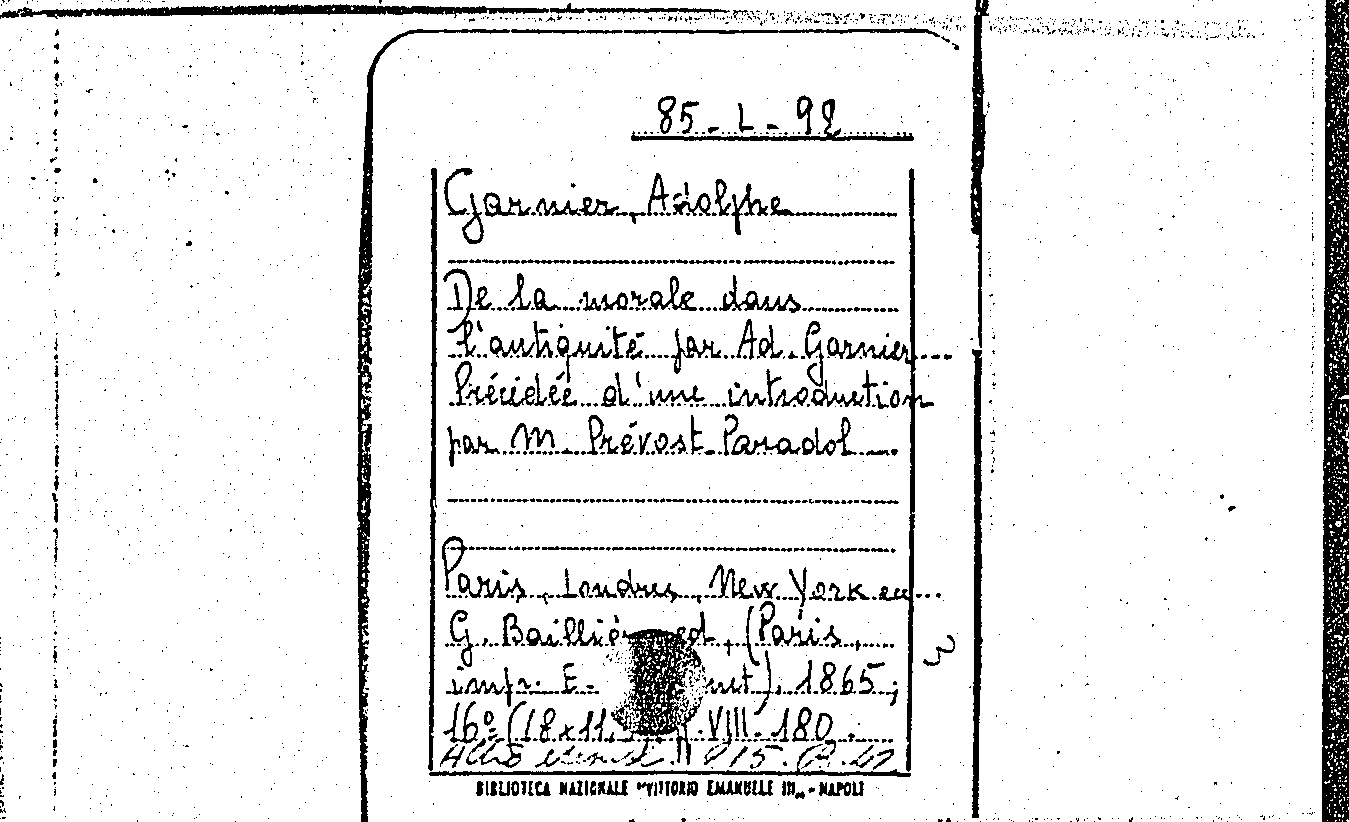 85-L-92
Garnier, Adolphe
De la morale dans
l'antiquité par Ad. Garnier...
Précédée d'une introduction
par M. Prévost-Paradol...
Paris, Londres, New York ecc...
G. ed, (Paris,
impr. E. 1865;
16º (18x11, VIII-180.
3
BIBLIOTECA NAZIONALE "VITTORIO EMANUELE III" - NAPOLI